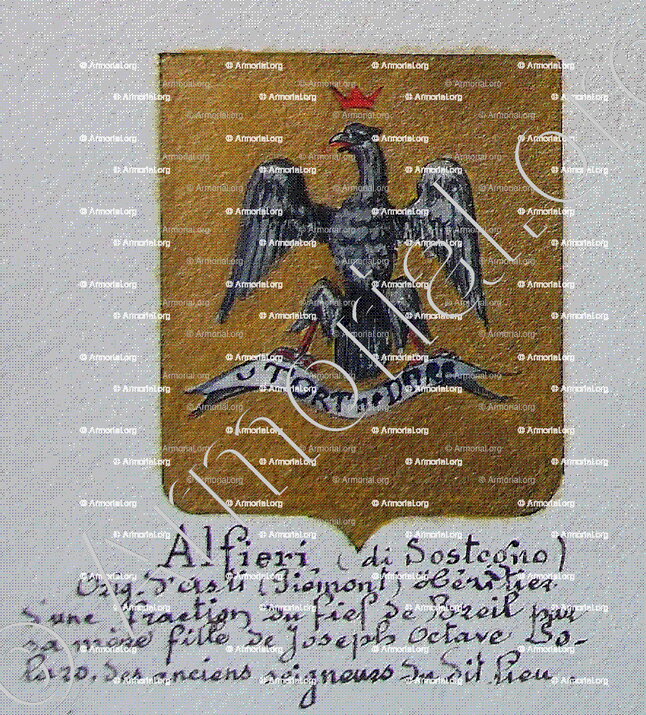 U TORT ne DURA
Alfieri (di Sostegno)
Orig. d'Asti (Piémont) héritier
d'une fraction du fief de Breil par
sa mère fille de Joseph Octave So-
laro, des anciens seigneurs du dit lieu
© Armorial.org